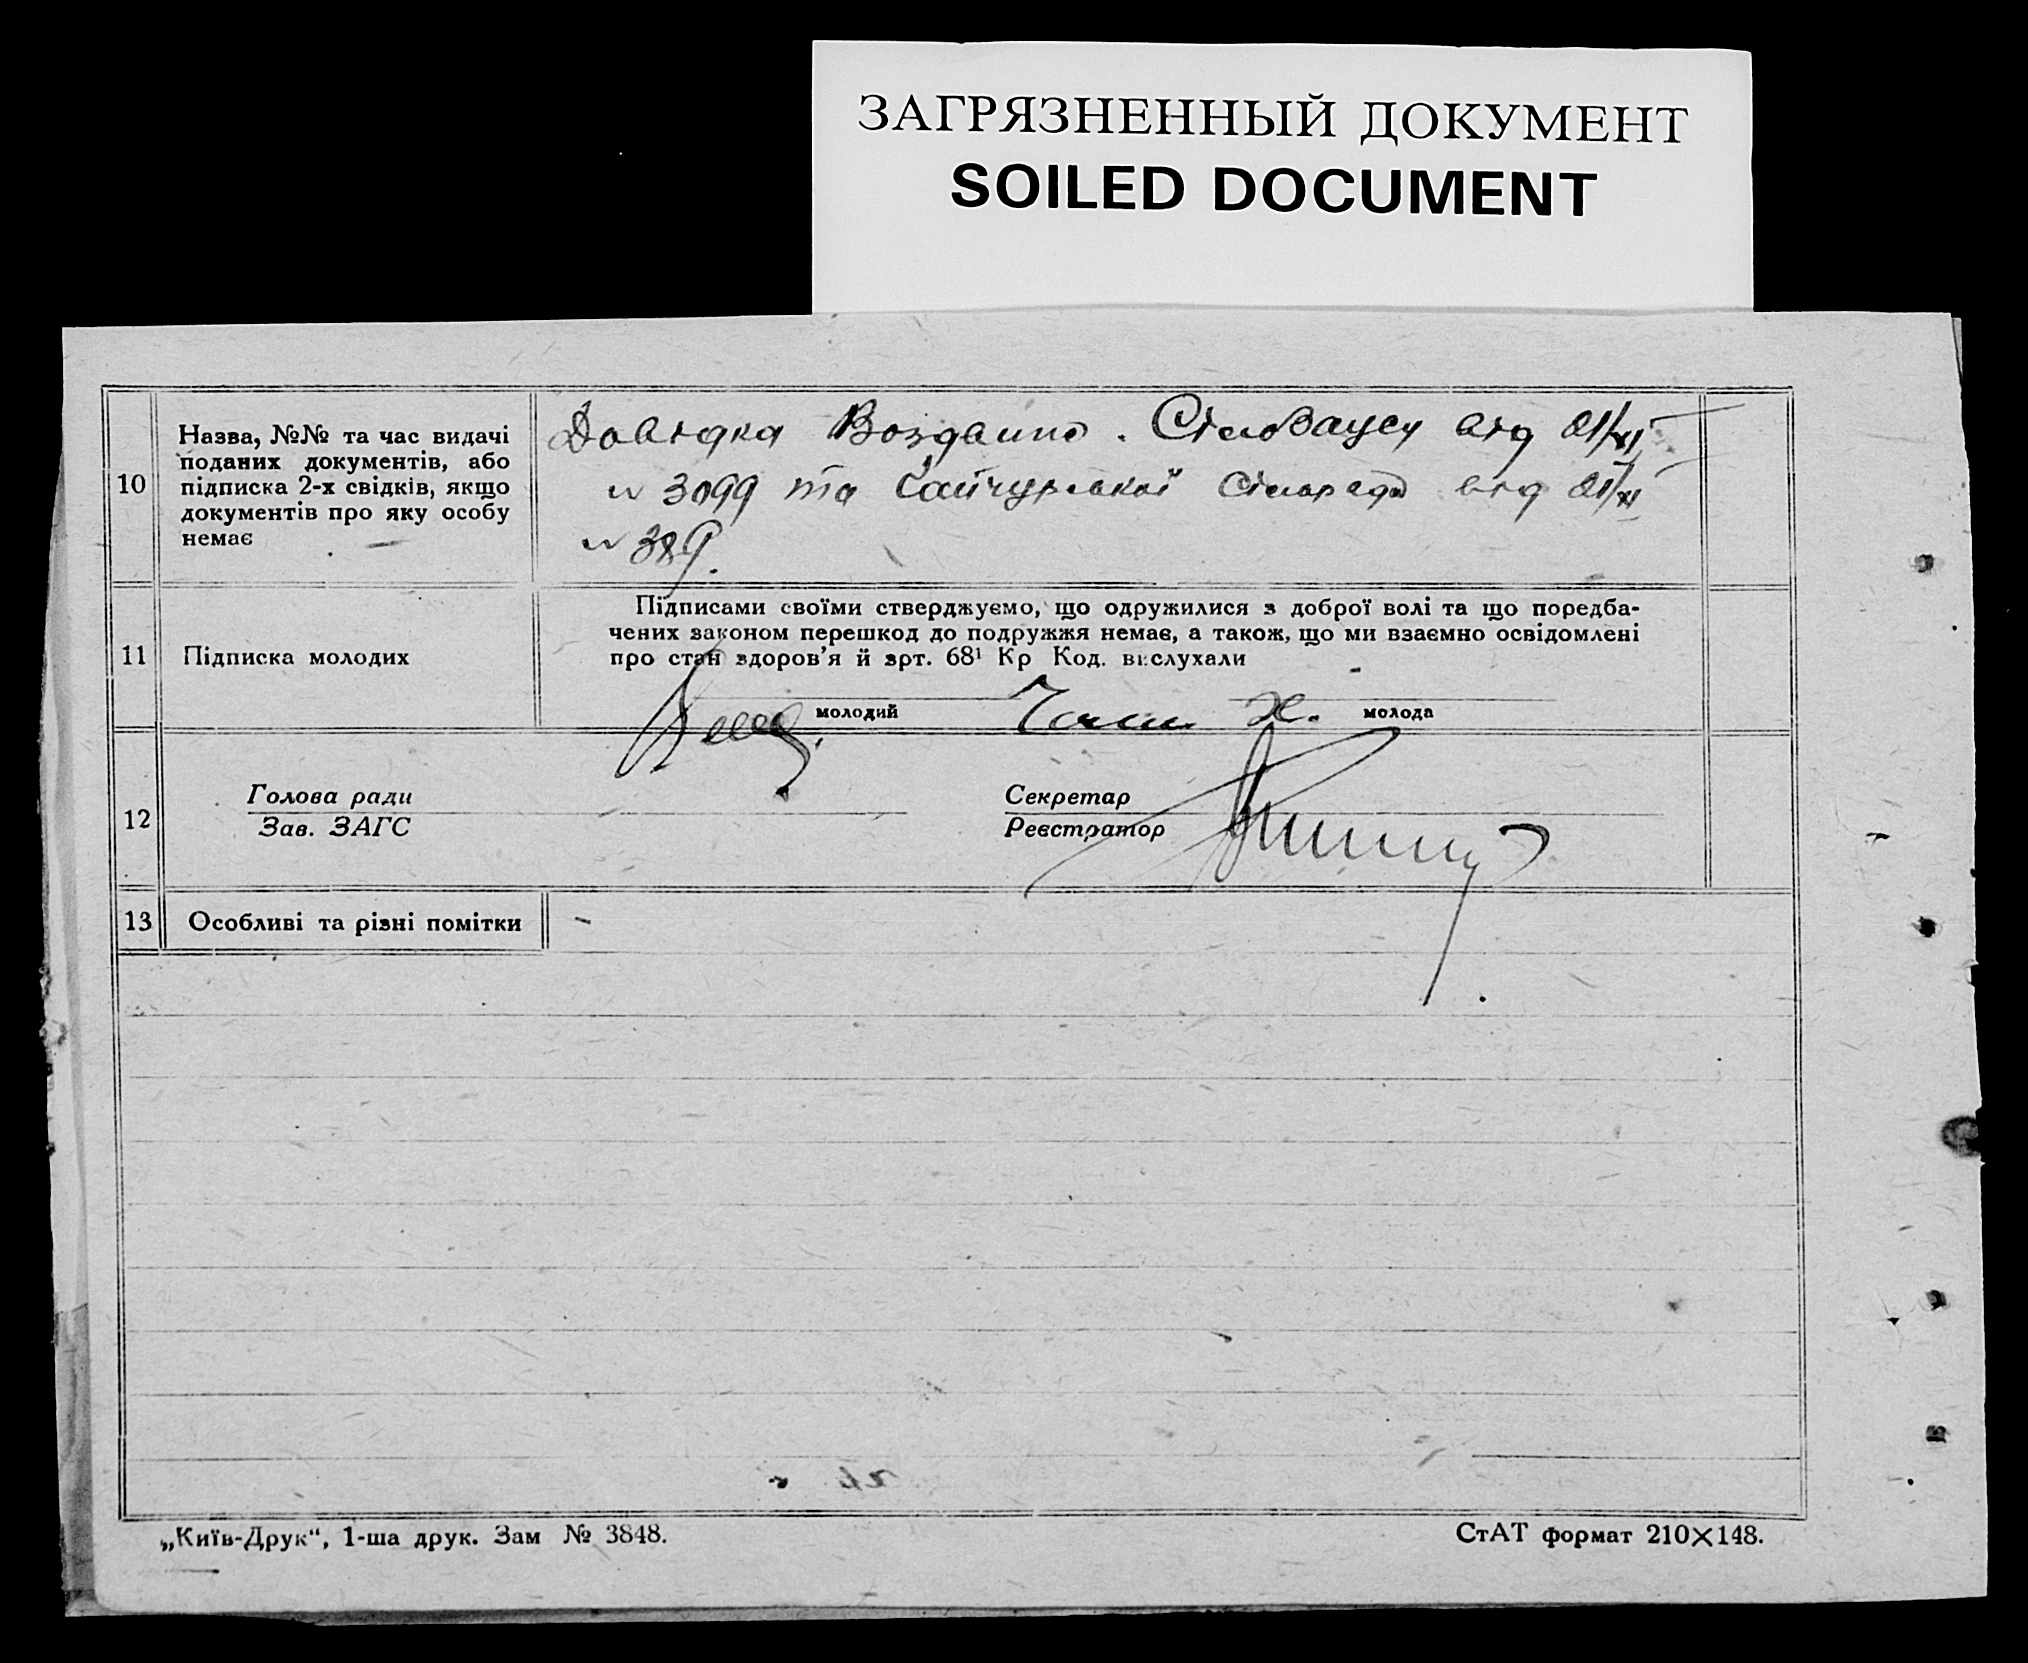 ЗАГРЯЗНЕННЫЙ ДОКУМЕНТ
SOILED DOCUMENT
10
Назва, №№ та час видачі
поданих документів, або
підписка 2-х свідків, якщо
документів про яку особу
немає
Довідка від 21/XI
№ 3099 та Гайчурської сільради від 21/XI
№ 389.
11
Підписка молодих
Підписами своїми стверджуємо, що одружилися з доброї волі та що передба-
чених законом перешкод до подружжя немає, а також, що ми взаємно освідомлені
про стан здоров'я й арт. 68¹ Кр Код. вислухали
молодий
молода
12
Голова ради
Зав. ЗАГС
Секретар
Реєстратор
13
Особливі та різні помітки
-
„Київ-Друк“, 1-ша друк. Зам № 3848.
СтАТ формат 210×148.